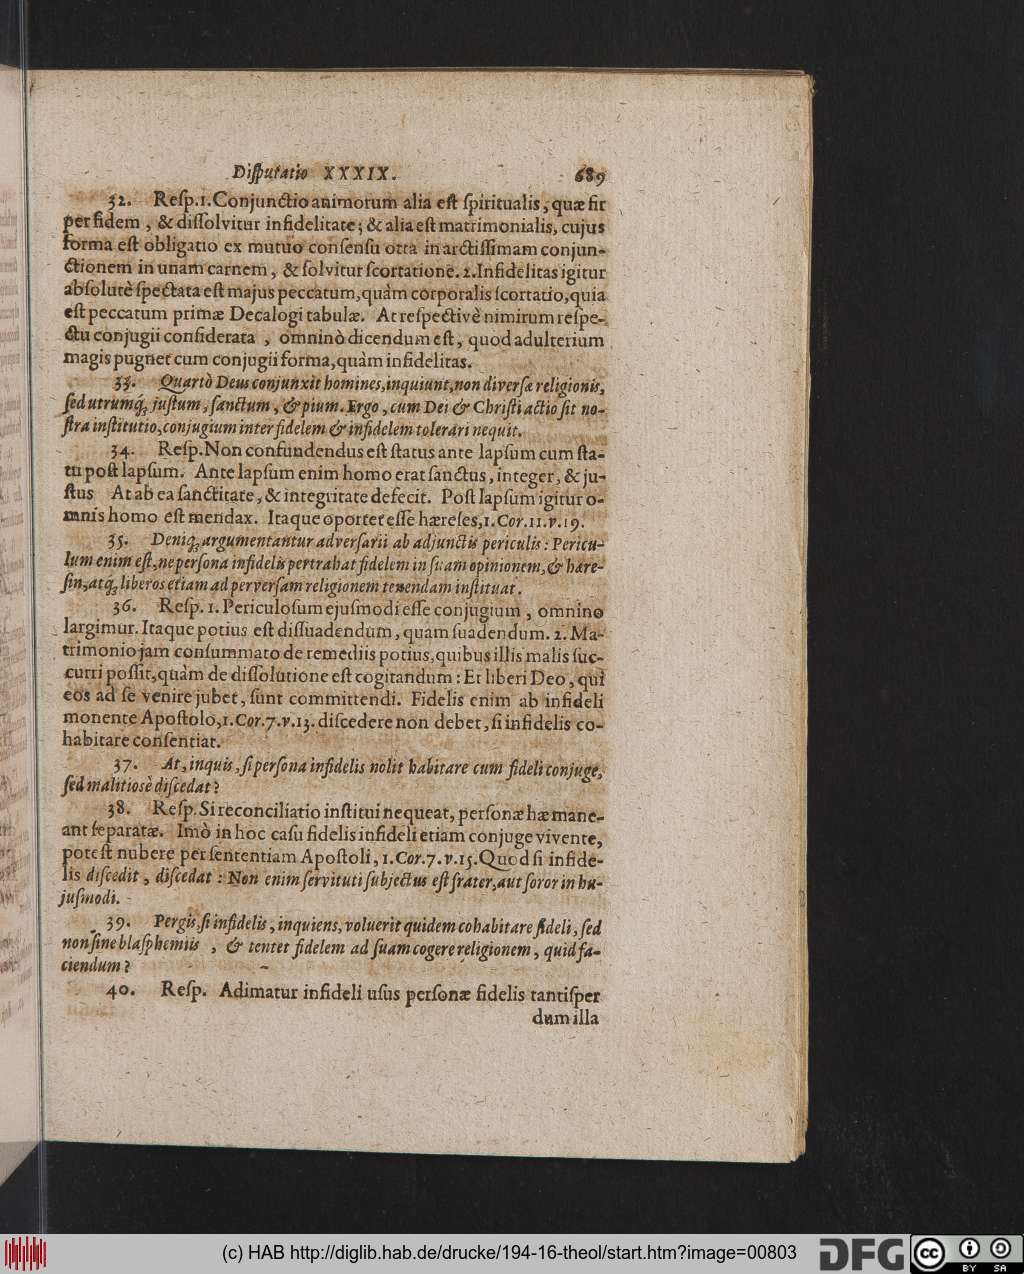 Diſputatio XXXIX. 689
32. Reſp.1.Conjunctio animorum alia eſt ſpiritualis, quæ fit
per fidem, & diſſolvitur infidelitate; & alia eſt matrimonialis, cujus
forma eſt obligatio ex mutuo conſenſu orta in arctiſſimam conjun-
ctionem in unam carnem, & ſolvitur ſcortatione. 2.Infidelitas igitur
abſolutè ſpectata eſt majus peccatum,quàm corporalis ſcortatio,quia
eſt peccatum primæ Decalogi tabulæ. At reſpectivè nimirum reſpe-
ctu conjugii conſiderata, omninò dicendum eſt, quod adulterium
magis pugnet cum conjugii forma,quàm infidelitas.
33. Quartò Deus conjunxit homines,inquiunt,non diverſæ religionis,
ſed utrumq́; juſtum, ſanctum, & pium. Ergo, cum Dei & Chriſti actio ſit no-
ſtra inſtitutio,conjugium inter fidelem & infidelem tolerari nequit.
34. Reſp.Non confundendus eſt ſtatus ante lapſum cum ſta-
tu poſt lapſum. Ante lapſum enim homo erat ſanctus, integer, & ju-
ſtus At ab ea ſanctitate, & integritate defecit. Poſt lapſum igitur o-
mnis homo eſt mendax. Itaque oportet eſſe hæreſes,1.Cor.11.v.19.
35. Deniq; argumentantur adverſarii ab adjunctis periculis: Pericu-
lum enim eſt,ne perſona infidelis pertrahat fidelem in ſuam opinionem,& hære-
ſin,atq́; liberos etiam ad perverſam religionem tenendam inſtituat.
36. Reſp. 1. Periculoſum ejuſmodi eſſe conjugium, omnino
largimur. Itaque potius eſt diſſuadendum, quam ſuadendum. 2. Ma-
trimonio jam conſummato de remediis potius,quibus illis malis ſuc-
curri poſſit,quàm de diſſolutione eſt cogitandum: Et liberi Deo, qui
eos ad ſe venire jubet, ſunt committendi. Fidelis enim ab infideli
monente Apoſtolo,1.Cor.7.v.13. diſcedere non debet, ſi infidelis co-
habitare conſentiat.
37. At, inquis, ſi perſona infidelis nolit habitare cum fideli conjuge,
ſed malitiosè diſcedat?
38. Reſp. Si reconciliatio inſtitui nequeat, perſonæ hæ mane-
ant ſeparatæ. Imò in hoc caſu fidelis infideli etiam conjuge vivente,
poteſt nubere per ſententiam Apoſtoli, 1.Cor.7.v.15. Quod ſi infide-
lis diſcedit, diſcedat: Non enim ſervituti ſubjectus eſt frater,aut ſoror in hu-
juſmodi.
39. Pergis,ſi infidelis, inquiens,voluerit quidem cohabitare fideli, ſed
non ſine blaſphemiis, & tentet fidelem ad ſuam cogere religionem, quid fa-
ciendum?
40. Reſp. Adimatur infideli uſus perſonæ fidelis tantiſper
dum illa
(c) HAB http://diglib.hab.de/drucke/194-16-theol/start.htm?image=00803
DFG
cc BY SA